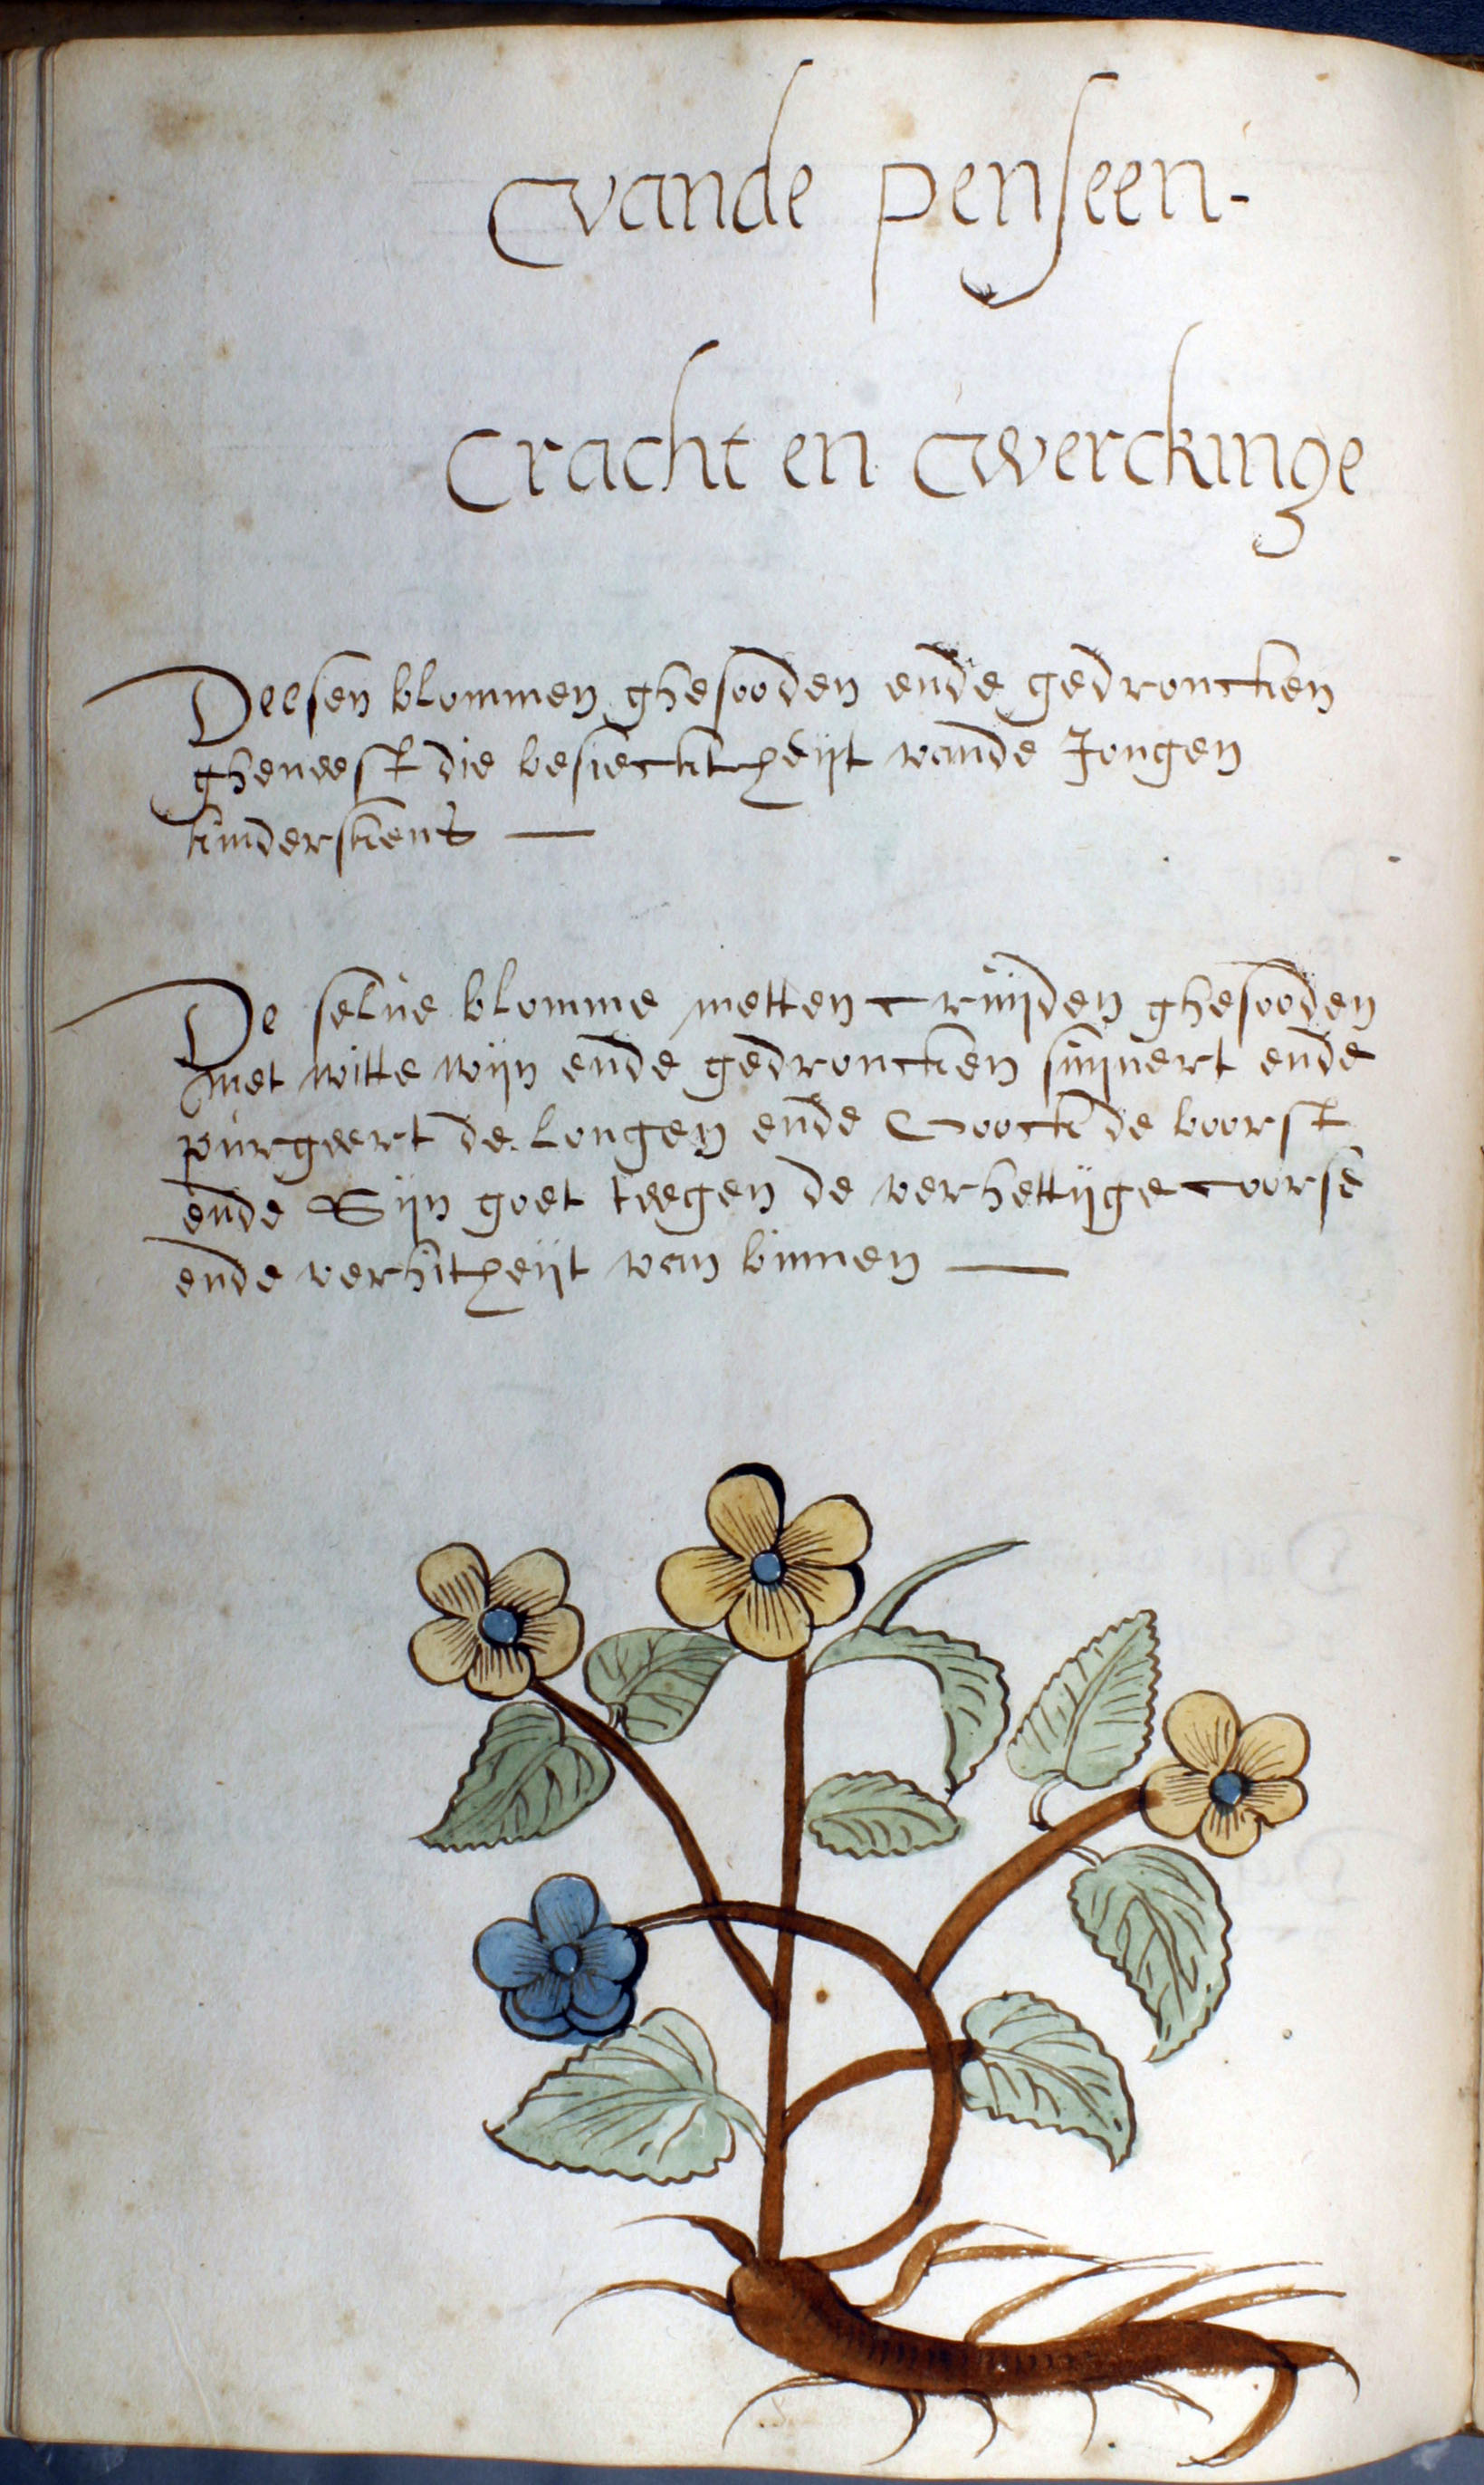 vande penseen-
Cracht en werckinge
Deesen blommen ghesooden ende gedroncken
gheneest die besiecktheijt vande Jongen
kinderskens —
De selve blomme metten cruijden ghesooden
met witte wijn ende gedroncken suijvert ende
purgeert de longen ende Oock de boorst
ende Sijn goet teegen de verhettijge coorse
ende verhitheijt van binnen —